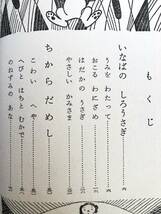 もくじ
いなばの しろうさぎ
うみを わたって
おこる わにざめ
はだかの うさぎ
やさしい かみさま
ちからだめし
こわい へや
へびと はちと むかで
のねずみの あな